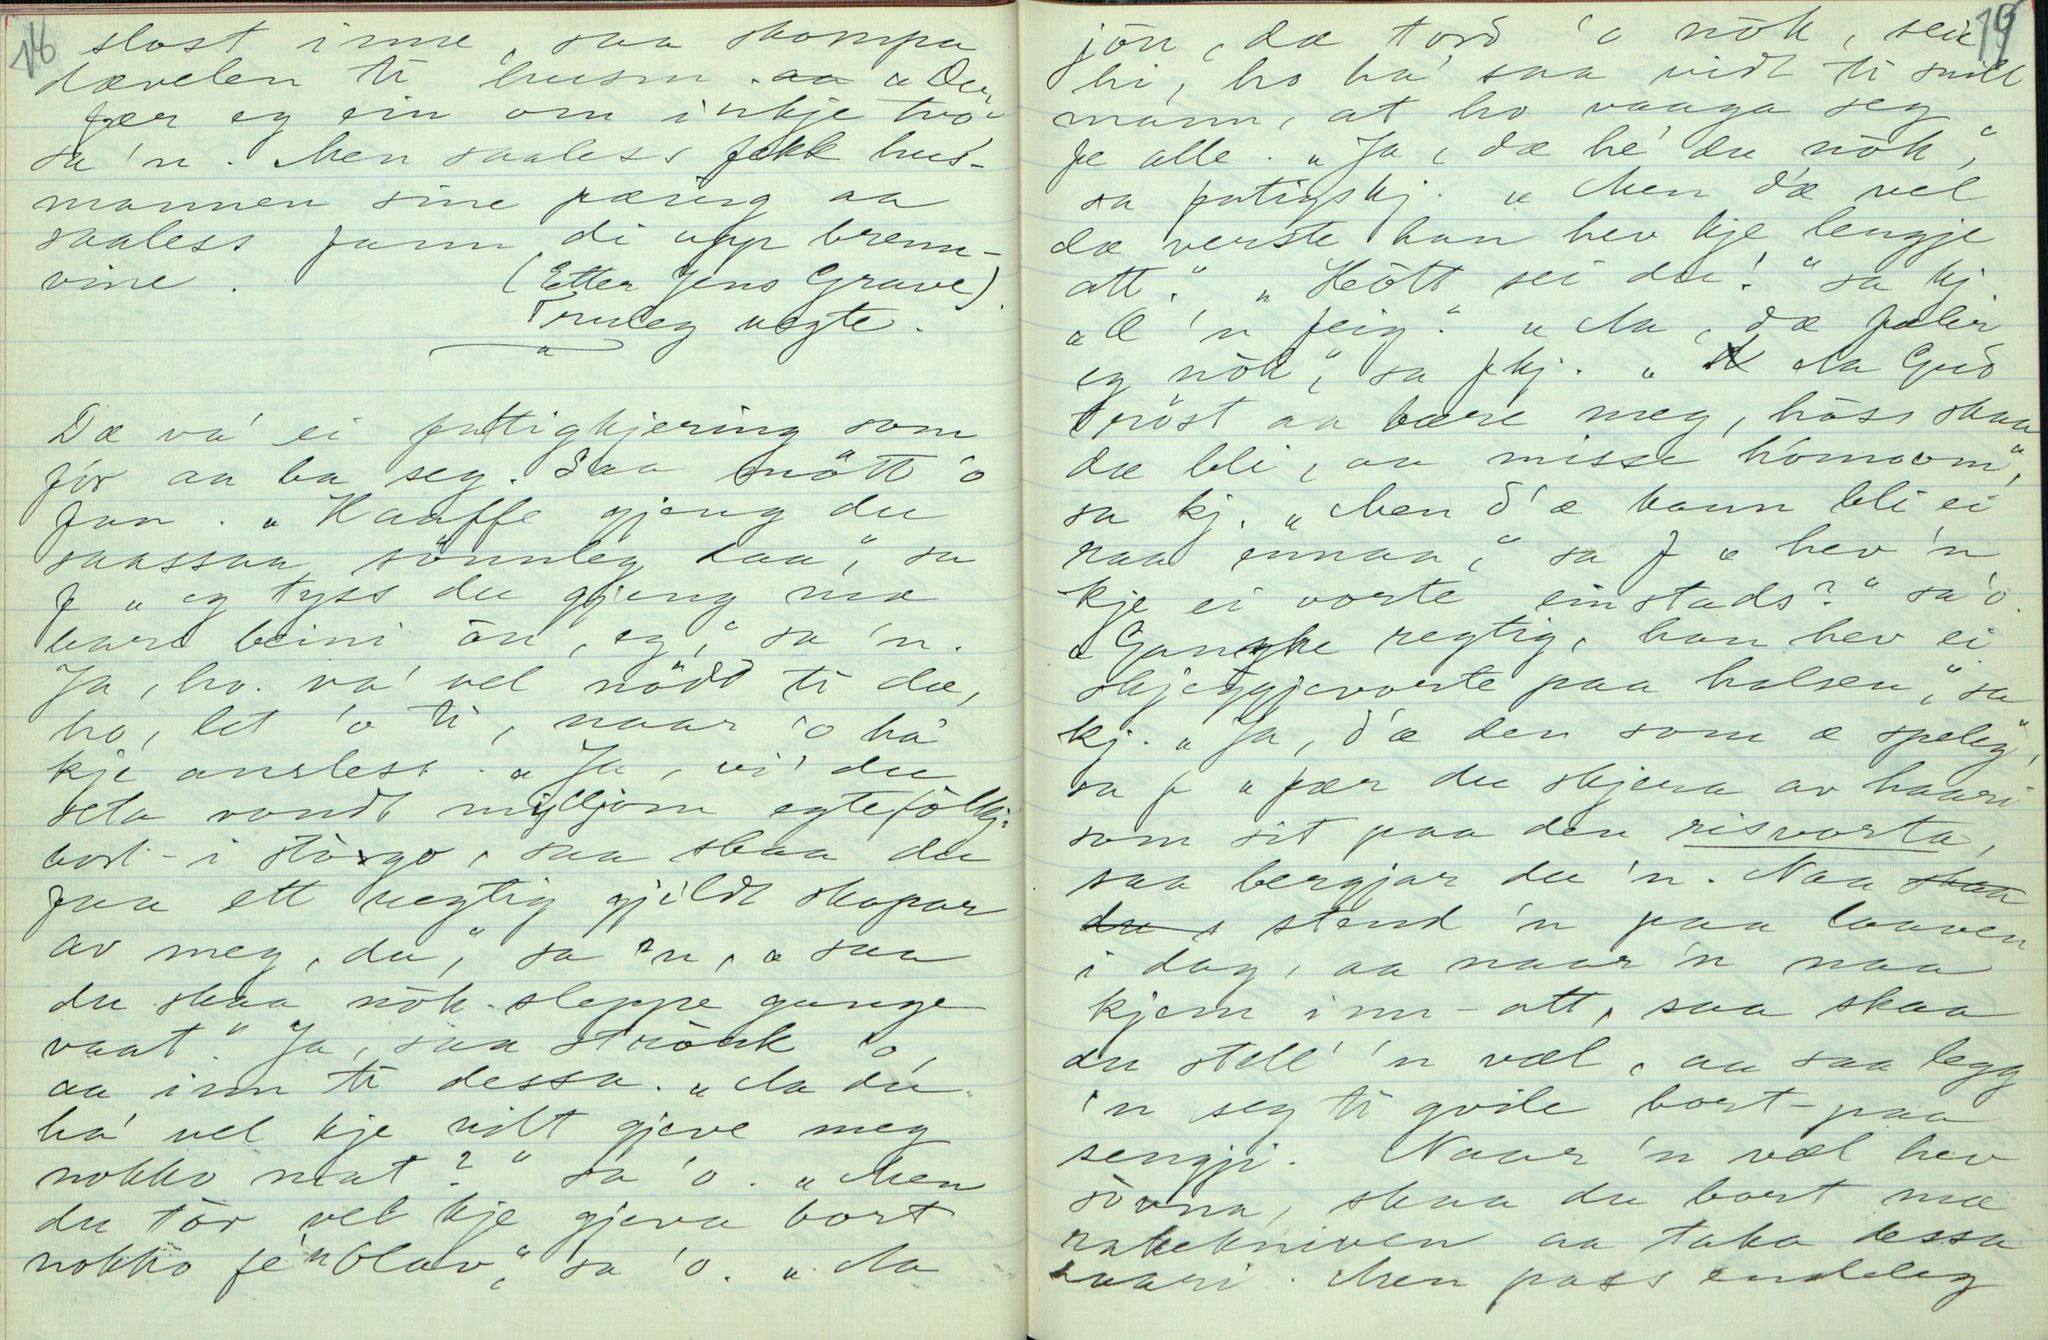 16
slost inne, saa skompa
dævelen ti husm. aa „Du
fær eg ein om inkje tvo"
sa 'n. Men saaless fekk hus-
mannen sine pæning aa
saaless funn di upp brenn-
vine. (Etter Jens Grave).
Truleg ægte.
Dæ va' ei fattigkjering som
fór aa ba seg. Saa mött 'o
fan. „Kaaffe gjeng du
saassaa sönnleg daa," sa
f „eg tyss du gjeng mæ
bare beini òn, eg," sa 'n.
Ja, ho va' vel nödd ti dæ,
ho, let 'o ti, naar 'o ha'
kje ansless. „Ja, vi' du
seta vondt myllom egtefolkj
bort-i störgo, saa skaa du
faa ett rægtig gjildt skopar
av meg, du," sa 'n, „saa
du skaa nòk sleppe gange
vaat." Ja, saa strauk 'o,
aa inn ti dessa. „Aa du
ha' vel kje vilt gjeve meg
nokko mat?" sa 'o. „Men
du tör vel kje gjeva bort
nokko fe'n Olav," sa 'o. „Aa
19
jòu, dæ tord 'o nòk, sei
hi, ho ha' saa vidt ti snill
mann, at ho vaaga seg
fe alle. „Ja, dæ he' du nòk,"
sa fatigskj. „Men d'æ vel
dæ verste han hev kje lengje
att." „Hött sei du!" sa kj.
„Æ 'n feig." „Aa, dæ fæler
eg nòk," sa fkj. „Aa Gud
tröst aa bære meg, höss skaa
dæ bli, aa misse hónoom",
sa kj. „Men d'æ kann bli ei
raa ennaa," sa f „hev 'n
kje ei vorte einstads?" sa 'o.
„Ganske regtig, han hev ei
skjeggjevorte paa halsen," sa
kj. „Ja, d'æ den som æ speleg",
sa f „fær du skjera av haari
som sit paa den risvorta,
saa bergjar du 'n. Naa skaa
du s stend 'n paa laaven
i dag, aa naar 'n naa
kjem inn-att, saa skaa
du stell' 'n væl, aa saa legg
'n seg ti qvile bort-paa
sengji. Naar 'n væl hev
sovna, skaa du bort mæ
rakekniven aa taka dessa
haari. Men pass endeleg